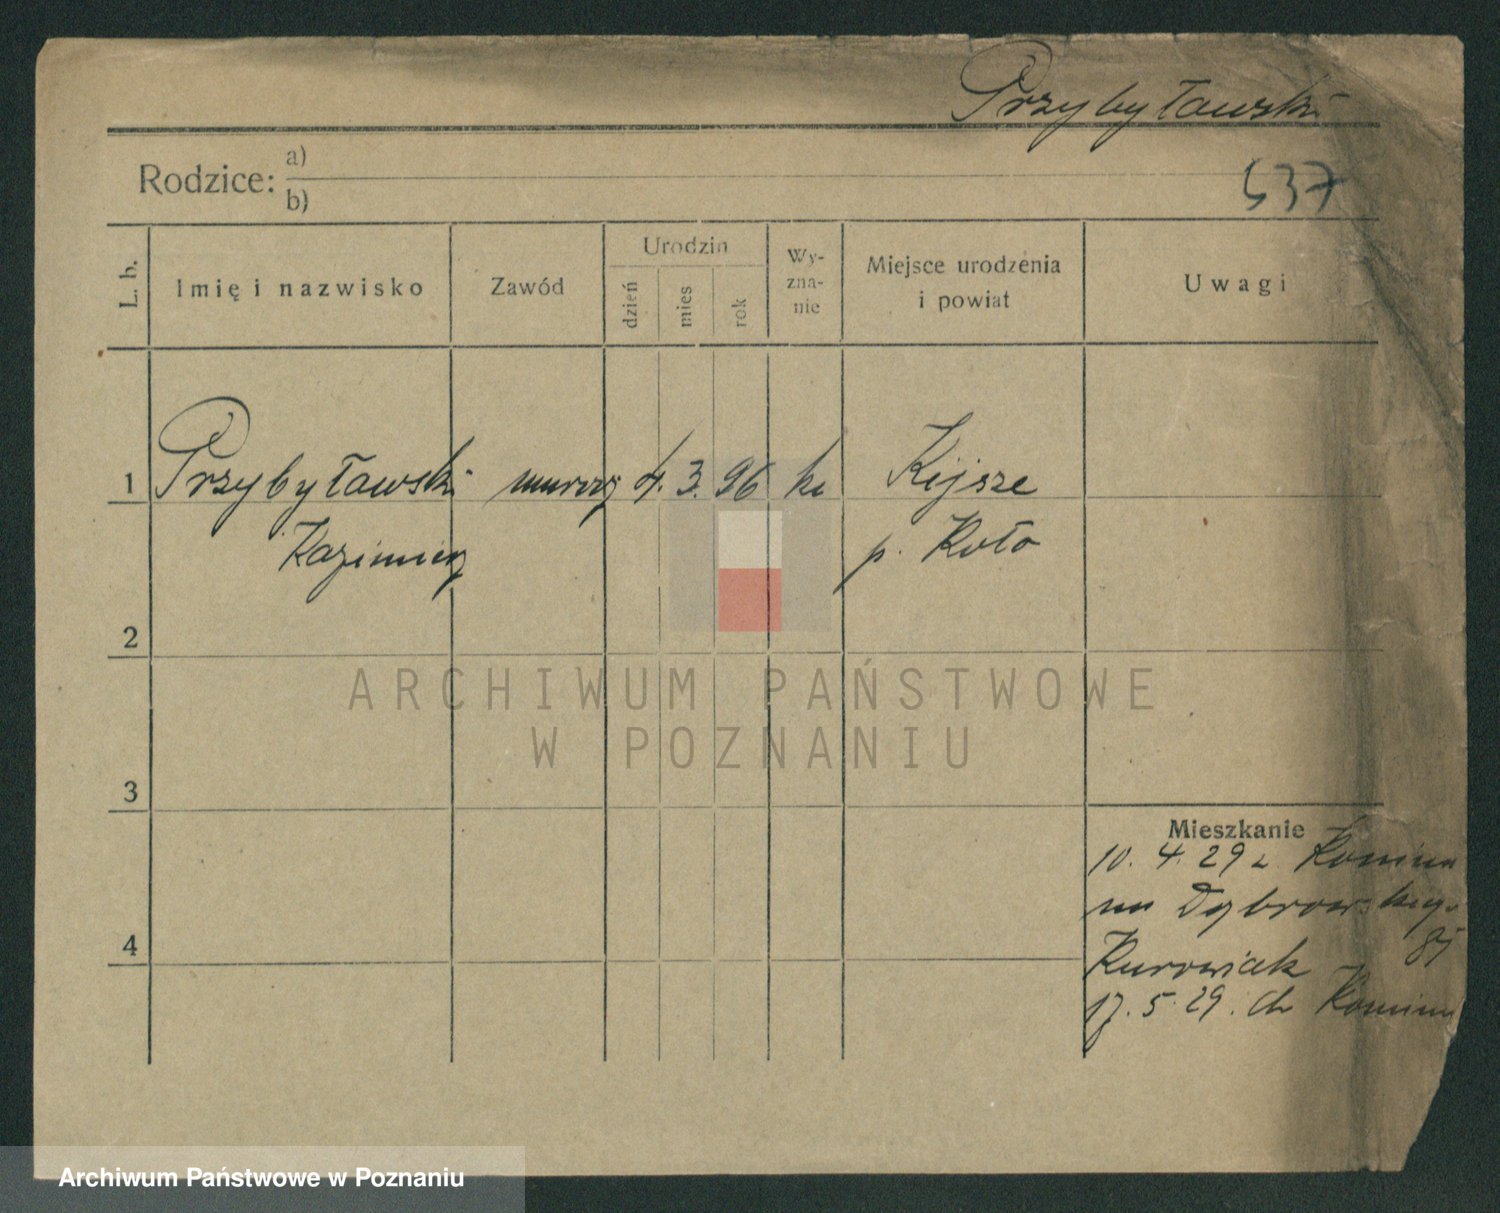 Przybyławski
Rodzice: a)
b)
537
L. b.
Imię i nazwisko
Zawód
Urodzin
dzień
mies
rok
Wy-
zna-
nie
Miejsce urodzenia
i powiat
Uwagi
1
Przybyławski murarz 4. 3. 96 kt Kijsze
Kazimierz p. Koło
2
3
4
Mieszkanie
10. 4. 29 z Konina
Dąbrowskiego
85
Kurowiak
17. 5. 29. do Konina
ARCHIWUM PAŃSTWOWE
W POZNANIU
Archiwum Państwowe w Poznaniu